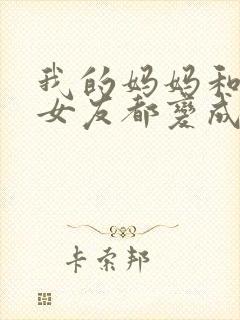 我的妈妈和
女友都变成
卡索邦